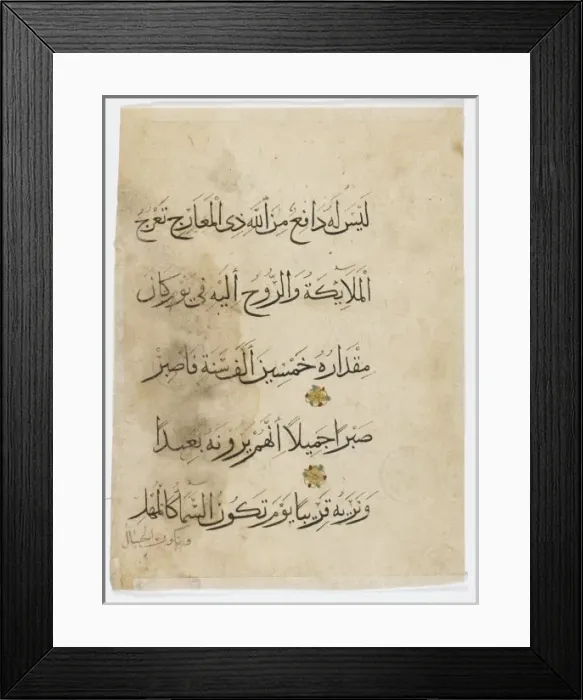 لَيْسَ لَهُ دَافِعٌ مِنَ ٱللَّهِ ذِى الْمَعَارِجِ تَعْرُجُ
الْمَلَآئِكَةُ وَالرُّوحُ أِلَيْهِ فِى يَوْمٍ كَانَ
مِقْدَارُهُ خَمْسِينَ أَلْفَ سَنَةٍ فَاصْبِرْ
صَبْرًا جَمِيلًا أِنَّهُمْ يَرَوْنَهُ بَعِيدًا
وَنَرَيهُ قَرِيبًا يَوْمَ تَكُونُ السَّمَآءُ كَالْمُهْلِ
وتكون الجبال